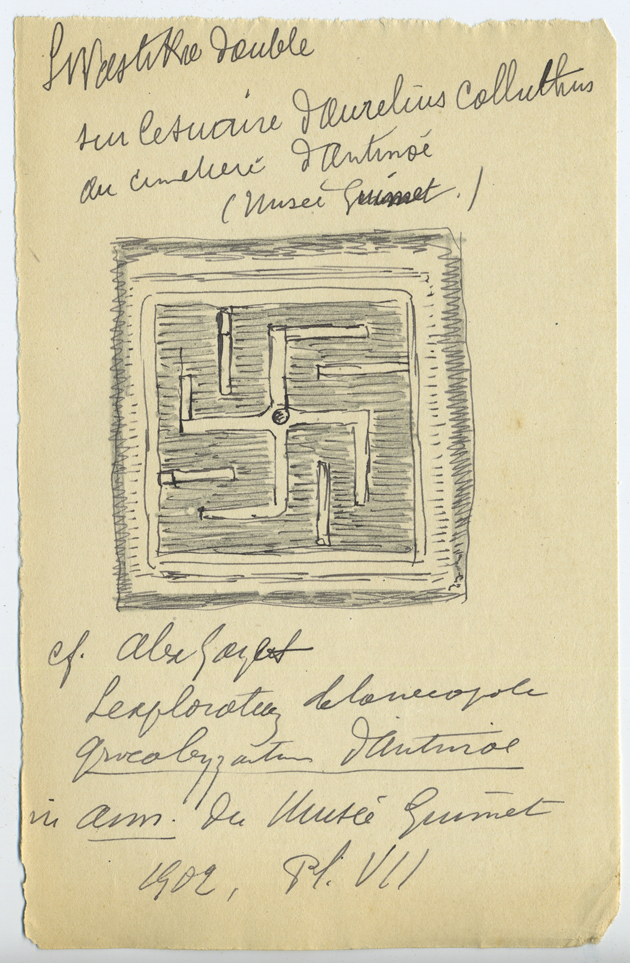 Swastika double
sur le suaire d'Aurelius Colluthus
au cimetière d'Antinoé
(Musée Guimet.)
cf. Alex Gayet
L'exploration de la necropole
grecobyzantine d'Antinoé
in ann. du Musée Guimet
1902, Pl. VII